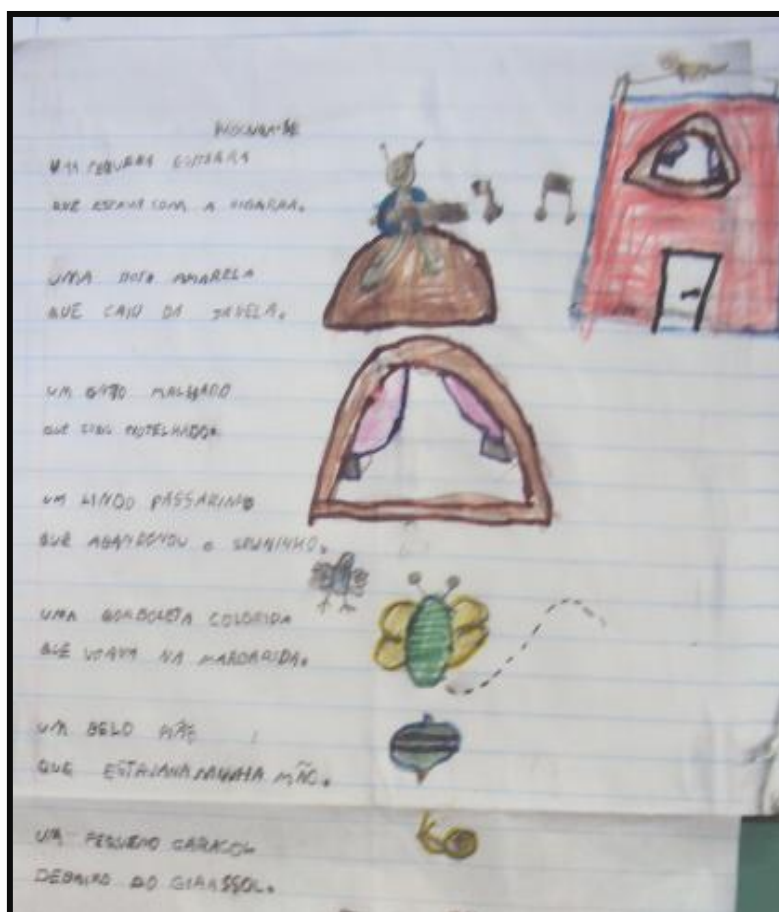 PROCURA-SE
UMA PEQUENA GUITARRA
QUE ESTAVA COM A CIGARRA.
UMA AMARELA
QUE CAIU DA JANELA.
UM GATO MALHADO
QUE
UM LINDO PASSARINHO
QUE ABANDONOU O SEU NINHO.
UMA BORBOLETA COLORIDA
QUE VOAVA NA MARGARIDA.
UM BELO
QUE ESTAVA NA MINHA MÃO.
UM PEQUENO CARACOL
DEBAIXO DO GIRASSOL.